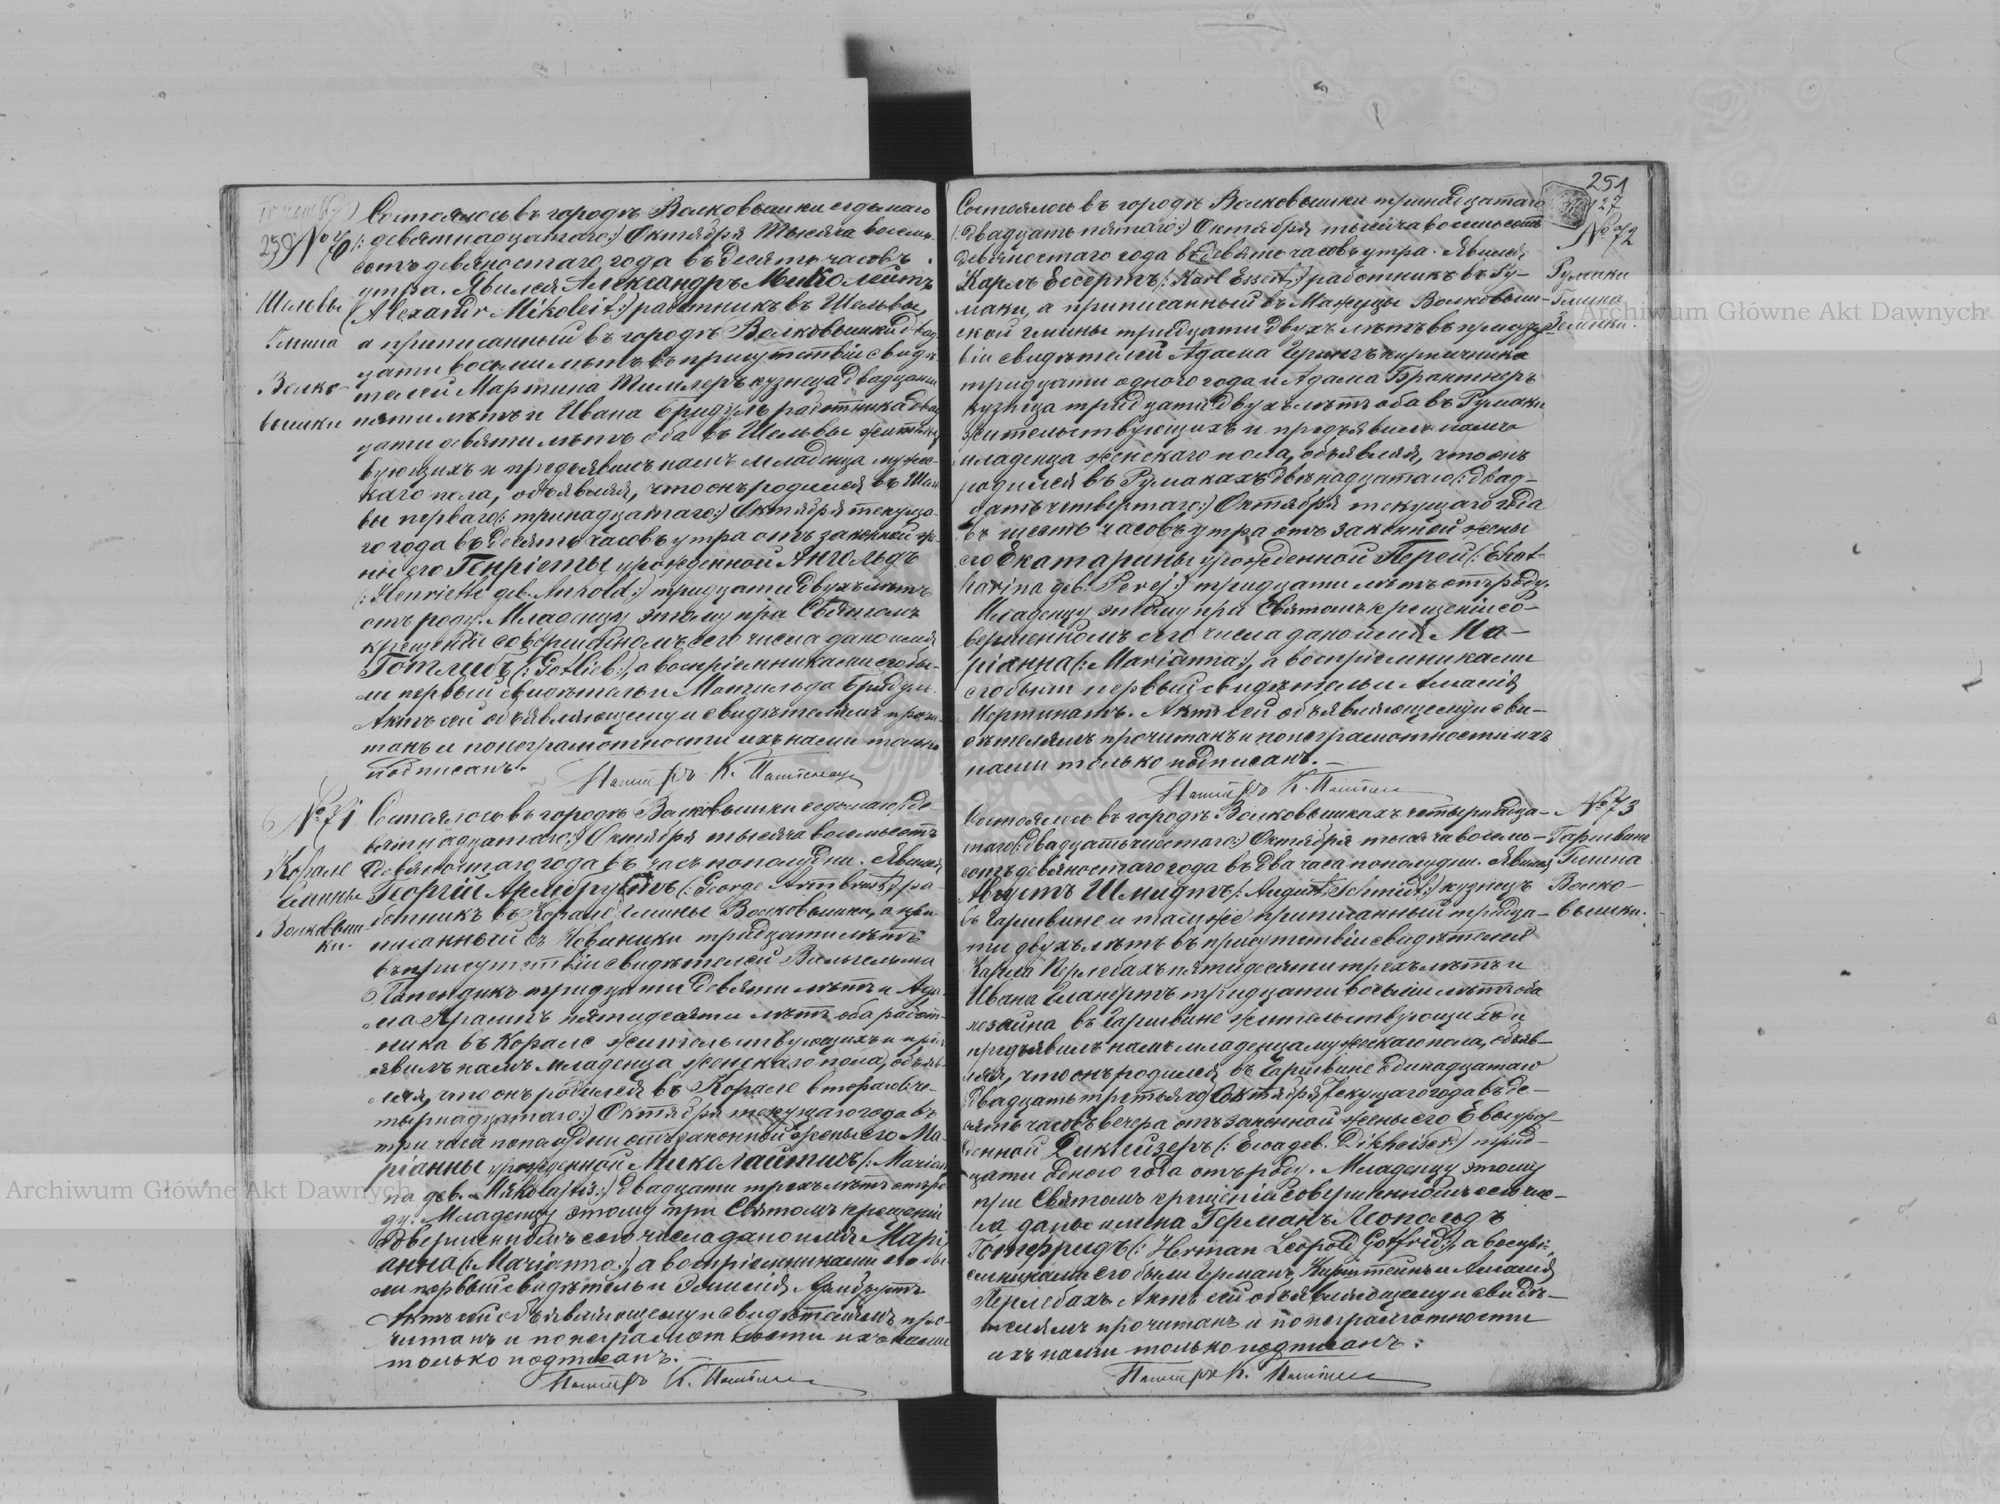 250
№ 70
Шельвы
Гмина
Волко-
вышки
Состоялось въ городѣ Волковышки седьмаго
(: девятнадцатаго:) Октября тысяча восемь-
сотъ девяностаго года въ десять часовъ
утра. Явился Александръ Миколейтъ
(Alexander Mikoleit:) работникъ въ Шельвы,
а приписанный въ городѣ Волковышки двад-
цати восьми лѣтъ въ присутствіи свидѣ-
телей Мартина Шиллеръ кузнеца двадцати
пяти лѣтъ и Ивана Бридуль работника двад-
цати девяти лѣтъ оба въ Шельвы житель-
вующихъ и предъявилъ намъ младенца мужес-
каго пола, объявляя, что онъ родился въ Шель-
вы перваго (: тринадцатаго:) Октября текуща-
го года въ десять часовъ утра отъ законной же-
ны его Генріеты урожденной Анголъдъ
(: Henriette geb. Anhold:) тридцати двухъ лѣтъ
отъ роду. Младенцу этому при Святомъ
крещеніи совершенномъ сего числа дано имя
Готлибъ (: Gotlieb:), а воспріемниками его бы-
ли первый свидѣтель и Матильда Бридуль.
Актъ сей объявляющему и свидѣтелямъ прочи-
танъ и по неграмотности ихъ нами только
подписанъ.
Пасторъ К.
№ 71
Корале
Гмины
Волковыш-
ки.
Состоялось въ городѣ Волковышки седьмаго (: де-
вятнадцатаго:) Октября тысяча восемьсотъ
девяностаго года въ часъ пополудни. Явился
Георгій Армбрустъ (: George Armbrust:) ра-
ботникъ въ Корале гмины Волковышки, а при-
писанный въ Новиники тридцати лѣтъ
въ присутствіи свидѣтелей Вильгельма
Папендикъ тридцати девяти лѣтъ и Ада-
ма Крамить пятидесяти лѣтъ оба работ-
ника въ Корале жительствующихъ и предъ-
явилъ намъ младенца женскаго пола, объяв-
ляя, что онъ родился въ Корале втораго (: че-
тырнадцатаго:) Октября текущаго года въ
три часа пополудни отъ законной жены его Ма-
ріанны урожденной Миколайтисъ (: Marian-
na geb. Mikolajtis:) двадцати трехъ лѣтъ отъ ро-
ду. Младенцу этому при Святомъ крещеніи
совершенномъ сего числа дано имя Марі-
анна (: Marianna:), а воспріемниками его бы-
ли первый свидѣтель и Эмилія Армбрустъ
Актъ сей объявляющему и свидѣтелямъ про-
читанъ и по неграмотности ихъ нами
только подписанъ.
Пасторъ К.
251
127
№ 72
Румаки
Гмина
Зелинки.
Состоялось въ городѣ Волковышки тринадцатаго
(: двадцать пятаго:) Октября тысяча восемьсотъ
девяностаго года въ девять часовъ утра. Явился
Карлъ Ессертъ (: Karl Essert:) работникъ въ Ру-
маки, а приписанный въ Мажуцы Волковыш-
ской гмины тридцати двухъ лѣтъ въ присутст-
віи свидѣтелей Адама Герингъ кирпичника
тридцати одного года и Адама Брантнеръ
кузнеца тридцати двухъ лѣтъ оба въ Румаки
жительствующихъ и предъявилъ намъ
младенца женскаго пола, объявляя, что онъ
родился въ Румакахъ двѣнадцатаго (: двад-
цать четвертаго:) Октября текущаго года
въ шесть часовъ утра отъ законной жены
его Екатарины урожденной Перей (: Ekat-
harina geb. Perej:) тридцати лѣтъ отъ роду.
Младенцу этому при Святомъ крещеніи со-
вершенномъ сего числа дано имя Ма-
ріанна (: Marianna:), а воспріемниками
его были первый свидѣтель и Амалія
Мертинатъ. Актъ сей объявляющему и сви-
дѣтелямъ прочитанъ и по неграмотности ихъ
нами только подписанъ.
Пасторъ К.
№ 73
Гаршвине
Гмина
Волко-
вышки.
Состоялось въ городѣ Волковышкахъ четырнадца-
таго (: двадцать шестаго:) Октября тысяча восемь-
сотъ девяностаго года въ два часа пополудни. Явился
Августъ Шмидтъ (: August Schmidt:) кузнецъ
въ Гаршвине и тамже приписанный тридца-
ти двухъ лѣтъ въ присутствіи свидѣтелей
Карла Перлебахъ пятидесяти трехъ лѣтъ и
Ивана Гланертъ тридцати восьми лѣтъ оба
хозяина въ Гаршвине жительствующихъ и
предъявилъ намъ младенца мужескаго пола, объяв-
ляя, что онъ родился въ Гаршвине одинадцатаго
(двадцать третьяго) Октября текущаго года въ де-
сять часовъ вечера отъ законной жены его Евы урож-
денной Дикгейзеръ (: Ewa geb. Dikheiser:) трид-
цати одного года отъ роду. Младенцу этому
при Святомъ крещеніи совершенномъ сего чис-
ла даны имена Германъ Леопольдъ
Готфридъ (: Herman Leopold Gotfried:), а воспрі-
емниками его были Германъ Кирштейнъ и Амалія
Перлебахъ. Актъ сей объявляющему и свидѣ-
телямъ прочитанъ и по неграмотности
ихъ нами только подписанъ.
Пасторъ К.
Archiwum Główne Akt Dawnych
Archiwum Główne Akt Dawnych